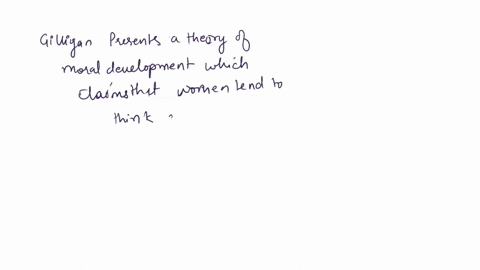 Gilligan Presents a theory of
moral development which
claims that women tend to
think